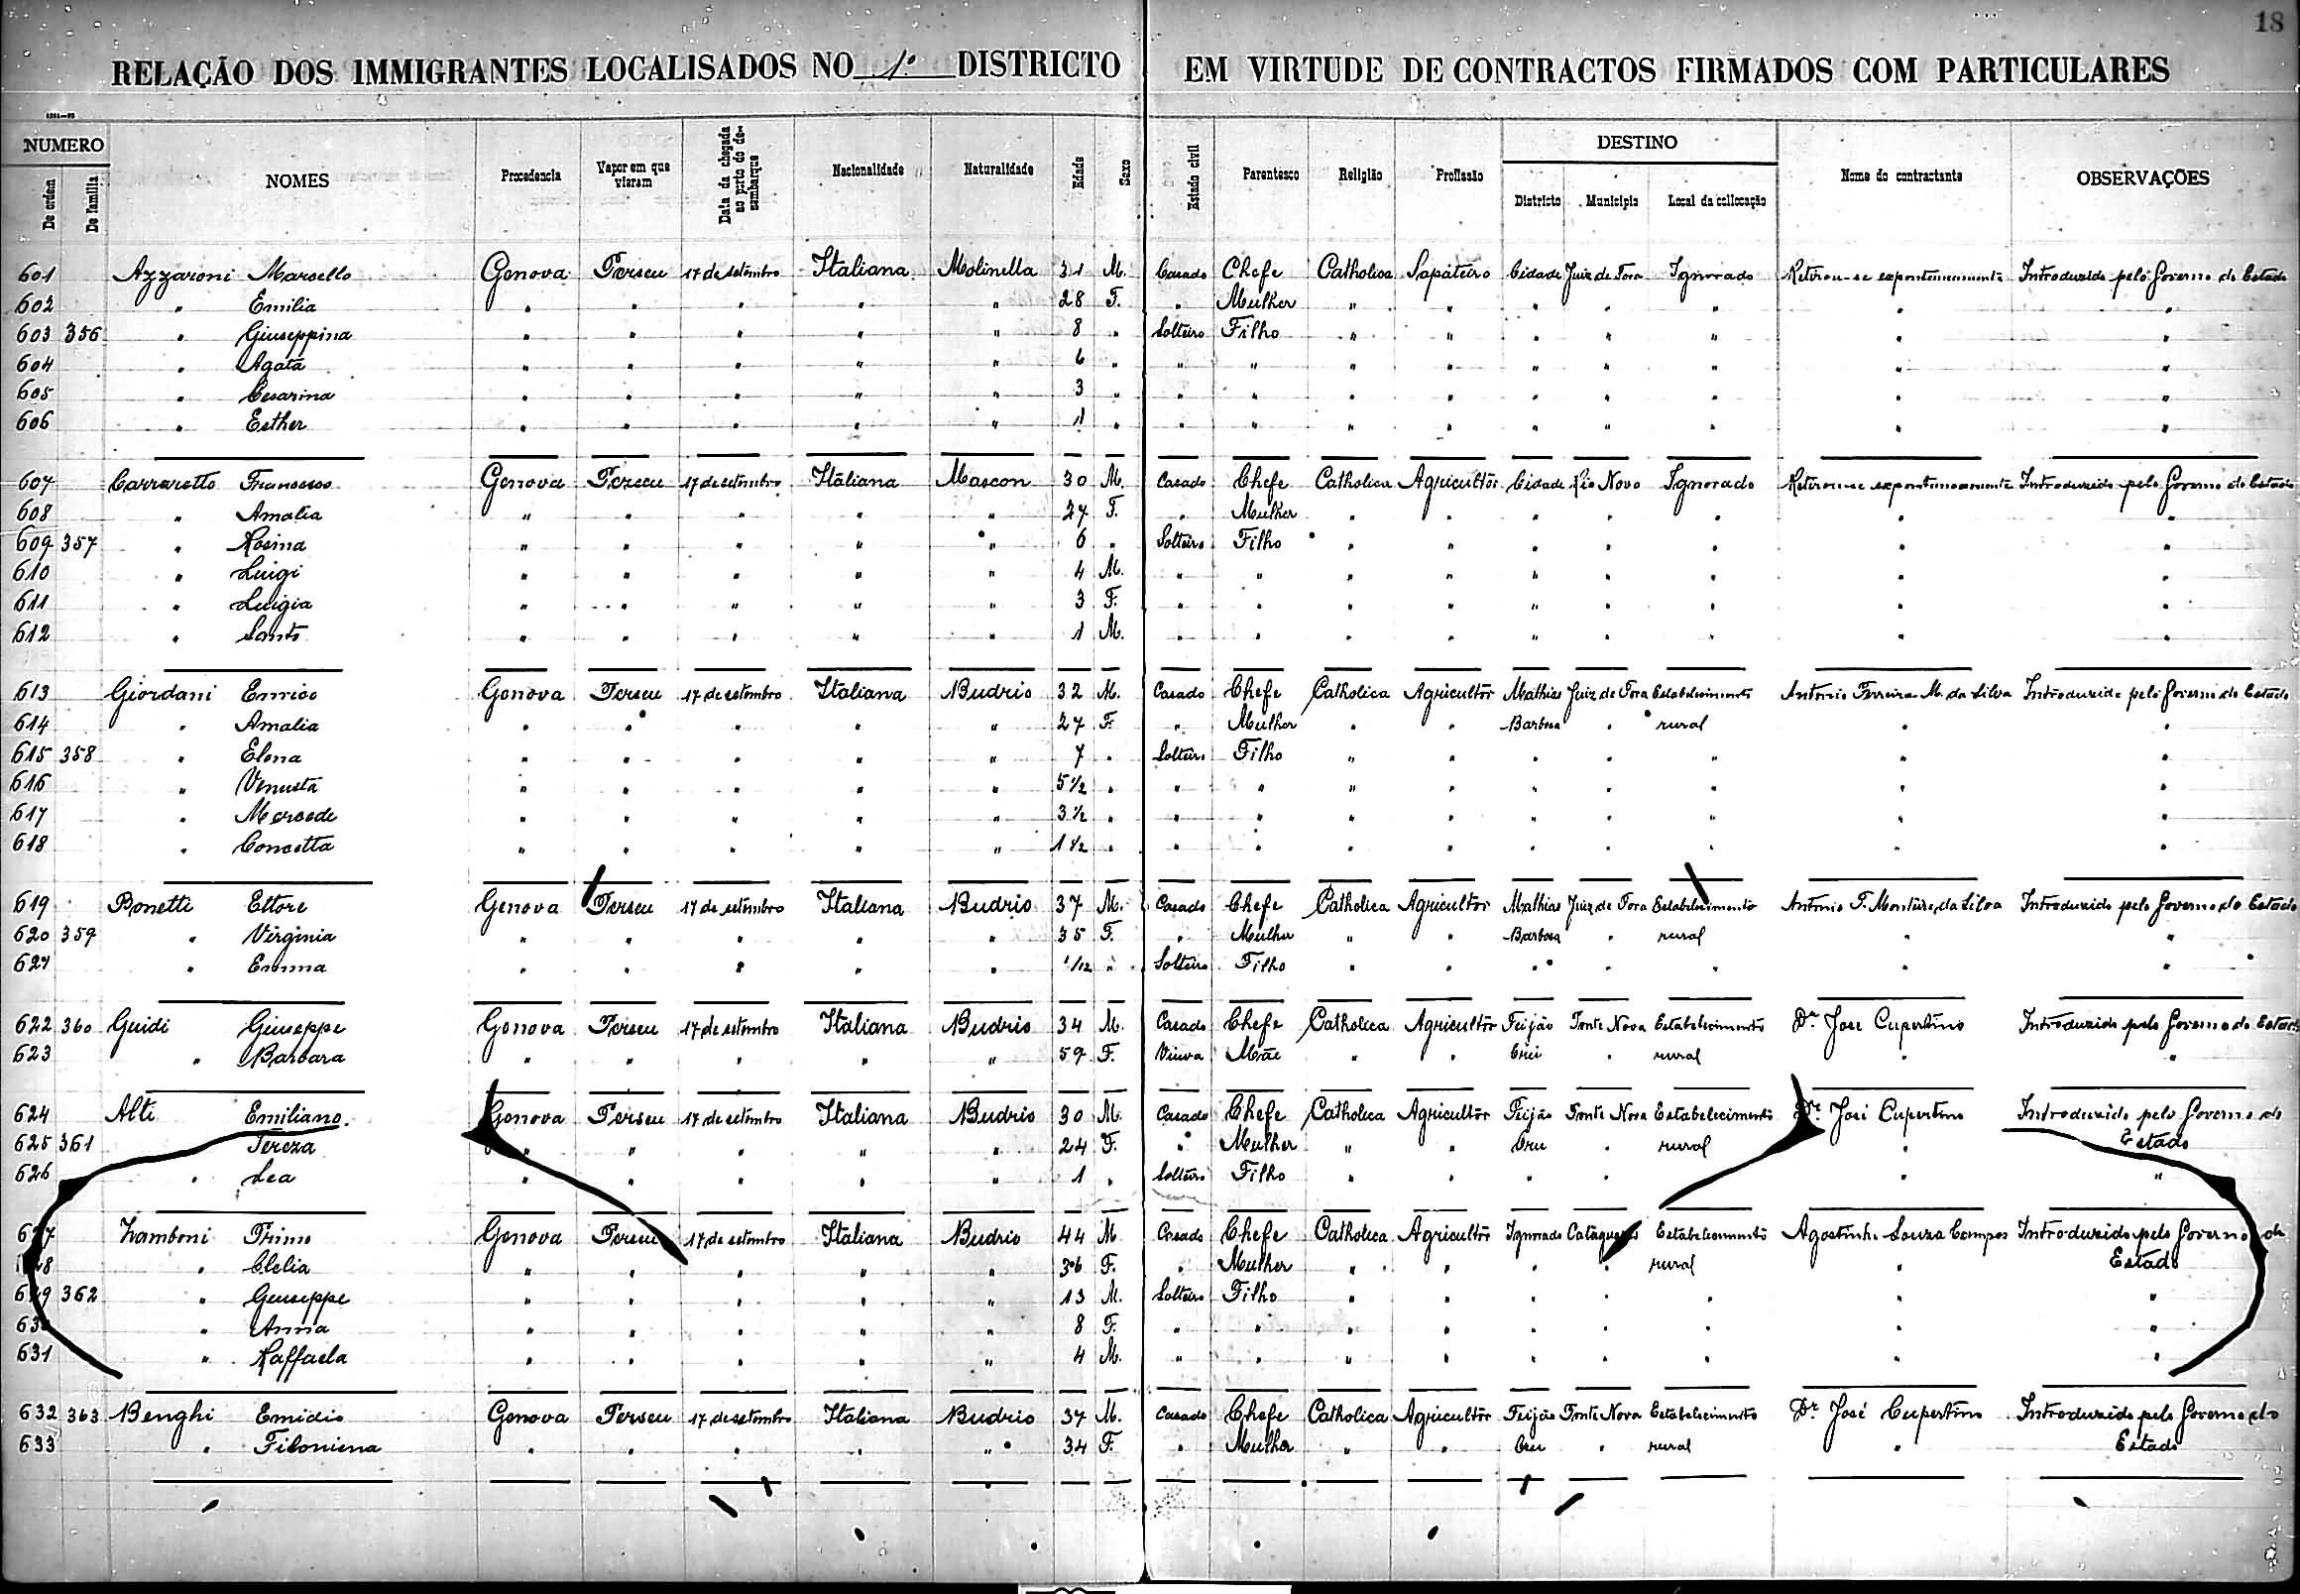 18
RELAÇÃO DOS IMMIGRANTES LOCALISADOS NO 1º DISTRICTO EM VIRTUDE DE CONTRACTOS FIRMADOS COM PARTICULARES
NUMERO De ordem De familia NOMES Procedencia Vapor em que vieram Data da chegada ao porto do desembarque Nacionalidade Naturalidade Edade Sexo Estado civil Parentesco Religião Profissão DESTINO Districto Municipio Local da collocação Nome do contractante OBSERVAÇÕES
601 Azzaroni Marsello Genova Perseu 17 de setembro Italiana Molinella 31 M. Casado Chefe Catholica Sapateiro Cidade Juiz de Fora Ignorado Retirou-se expontaneamente Introduzido pelo Governo do Estado
602 " Emilia " " " " " 28 F. " Mulher " " " " " " "
603 356 " Giuseppina " " " " " 8 " Solteiro Filho " " " " " " "
604 " Agata " " " " " 6 " " " " " " " " " "
605 " Cesarina " " " " " 3 " " " " " " " " " "
606 " Esther " " " " " 1 " " " " " " " " " "
607 Carraretto Francesco Genova Perseu 17 de setembro Italiana Mascon 30 M. Casado Chefe Catholica Agricultor Cidade Rio Novo Ignorado Retirou-se expontaneamente Introduzido pelo Governo do Estado
608 " Amalia " " " " " 27 F. " Mulher " " " " " " "
609 357 " Rosina " " " " " 6 " Solteiro Filho " " " " " " "
610 " Luigi " " " " " 4 M. " " " " " " " " "
611 " Luigia " " " " " 3 F. " " " " " " " " "
612 " Santo " " " " " 1 M. " " " " " " " " "
613 Giordani Enrico Genova Perseu 17 de setembro Italiana Budrio 32 M. Casado Chefe Catholica Agricultor Mathias Juiz de Fora Estabelecimento Antonio Ferreira M. da Silva Introduzido pelo Governo do Estado
614 " Amalia " " " " " 27 F. " Mulher " " Barbosa " rural " "
615 358 " Elena " " " " " 7 " Solteiro Filho " " " " " " "
616 " Venusta " " " " " 5 1/2 " " " " " " " " " "
617 " Mercede " " " " " 3 1/2 " " " " " " " " " "
618 " Concetta " " " " " 1 1/2 " " " " " " " " " "
619 Bonetti Ettore Genova Perseu 17 de setembro Italiana Budrio 37 M. Casado Chefe Catholica Agricultor Mathias Juiz de Fora Estabelecimento Antonio F. Monteiro da Silva Introduzido pelo Governo do Estado
620 359 " Virginia " " " " " 35 F. " Mulher " " Barbosa " rural " "
621 " Emma " " " " " 1/12 " Solteiro Filho " " " " " " "
622 360 Guidi Giuseppe Genova Perseu 17 de setembro Italiana Budrio 34 M. Casado Chefe Catholica Agricultor Feijão Ponte Nova Estabelecimento Dr. José Cupertino Introduzido pelo Governo do Estado
623 " Barbara " " " " " 59 F. Viuva Mãe " " Crú " rural " "
624 Alti Emiliano Genova Perseu 17 de setembro Italiana Budrio 30 M. Casado Chefe Catholica Agricultor Feijão Ponte Nova Estabelecimento Dr. José Cupertino Introduzido pelo Governo do
625 361 " Tereza " " " " " 24 F. " Mulher " " Cru " rural " Estado
626 " Lea " " " " " 1 " Solteiro Filho " " " " " " "
627 Zamboni Primo Genova Perseu 17 de setembro Italiana Budrio 44 M Casado Chefe Catholica Agricultor Ignorado Cataguases Estabelecimento Agostinho Souza Campos Introduzido pelo Governo do
628 " Clelia " " " " " 36 F. " Mulher " " " " rural " Estado
629 362 " Giuseppe " " " " " 13 M. Solteiro Filho " " " " " " "
630 " Anna " " " " " 8 F. " " " " " " " " "
631 " Raffaela " " " " " 4 M. " " " " " " " " "
632 363 Benghi Emidio Genova Perseu 17 de setembro Italiana Budrio 37 M. Casado Chefe Catholica Agricultor Feijão Ponte Nova Estabelecimento Dr. José Cupertino Introduzido pelo Governo do
633 " Filomena " " " " " 34 F. " Mulher " " Cru " rural " Estado